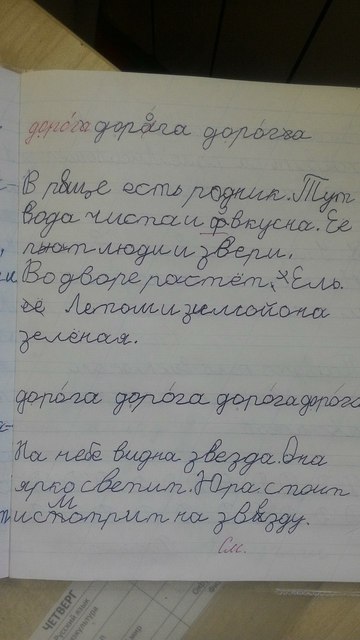 дорога дорога дорога
В роще есть родник. Тут
вода чиста и вкусна. Ее
пьют люди и звери.
Во дворе растёт Ель.
её Летом и зимой она
зелёная.
дорога дорога дорога дорога
На небе видна звезда. Она
ярко светит. Юра стоит
и смотрит на звезду.
См.
ЧЕТВЕРГ
Русский язык